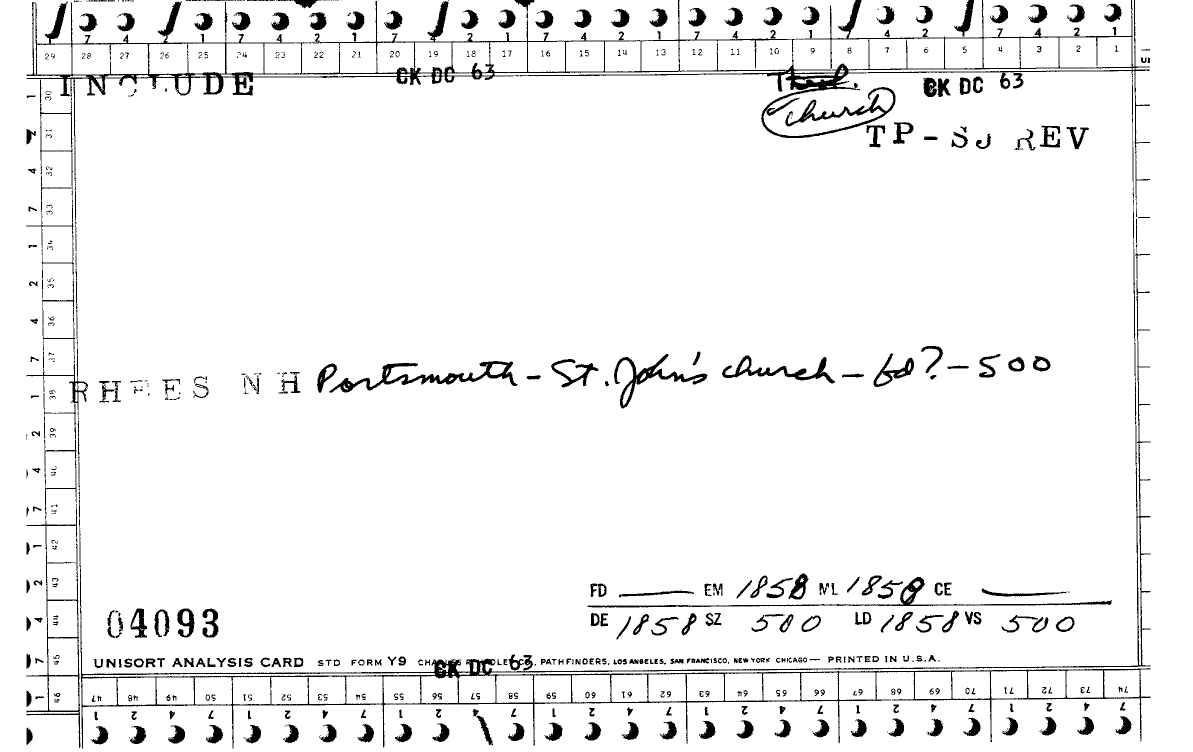 7 4 2 1 7 4 2 1 7 4 2 1 7 4 2 1 7 4 2 1 7 4 2 1 7 4 2 1
29 28 27 26 25 24 23 22 21 20 19 18 17 16 15 14 13 12 11 10 9 8 7 6 5 4 3 2 1
INCLUDE CK DC 63 Theol. CK DC 63
church
TP-SJ REV
1 30
2 31
4 32
7 33
1 34
2 35
4 36
7 37
RHEES NH Portsmouth - St. John's church - fd? - 500
1 38
2 39
4 40
7 41
1 42
2 43
FD EM 1858 ML 1858 CE
04093
4 44
DE 1858 SZ 500 LD 1858 VS 500
7 45
UNISORT ANALYSIS CARD STD FORM Y9 CK DC 63 PATHFINDERS, LOS ANGELES, SAN FRANCISCO, NEW YORK CHICAGO — PRINTED IN U.S.A.
1 46
47 48 49 50 51 52 53 54 55 56 57 58 59 60 61 62 63 64 65 66 67 68 69 70 71 72 73 74
1 2 4 7 1 2 4 7 1 2 4 7 1 2 4 7 1 2 4 7 1 2 4 7 1 2 4 7